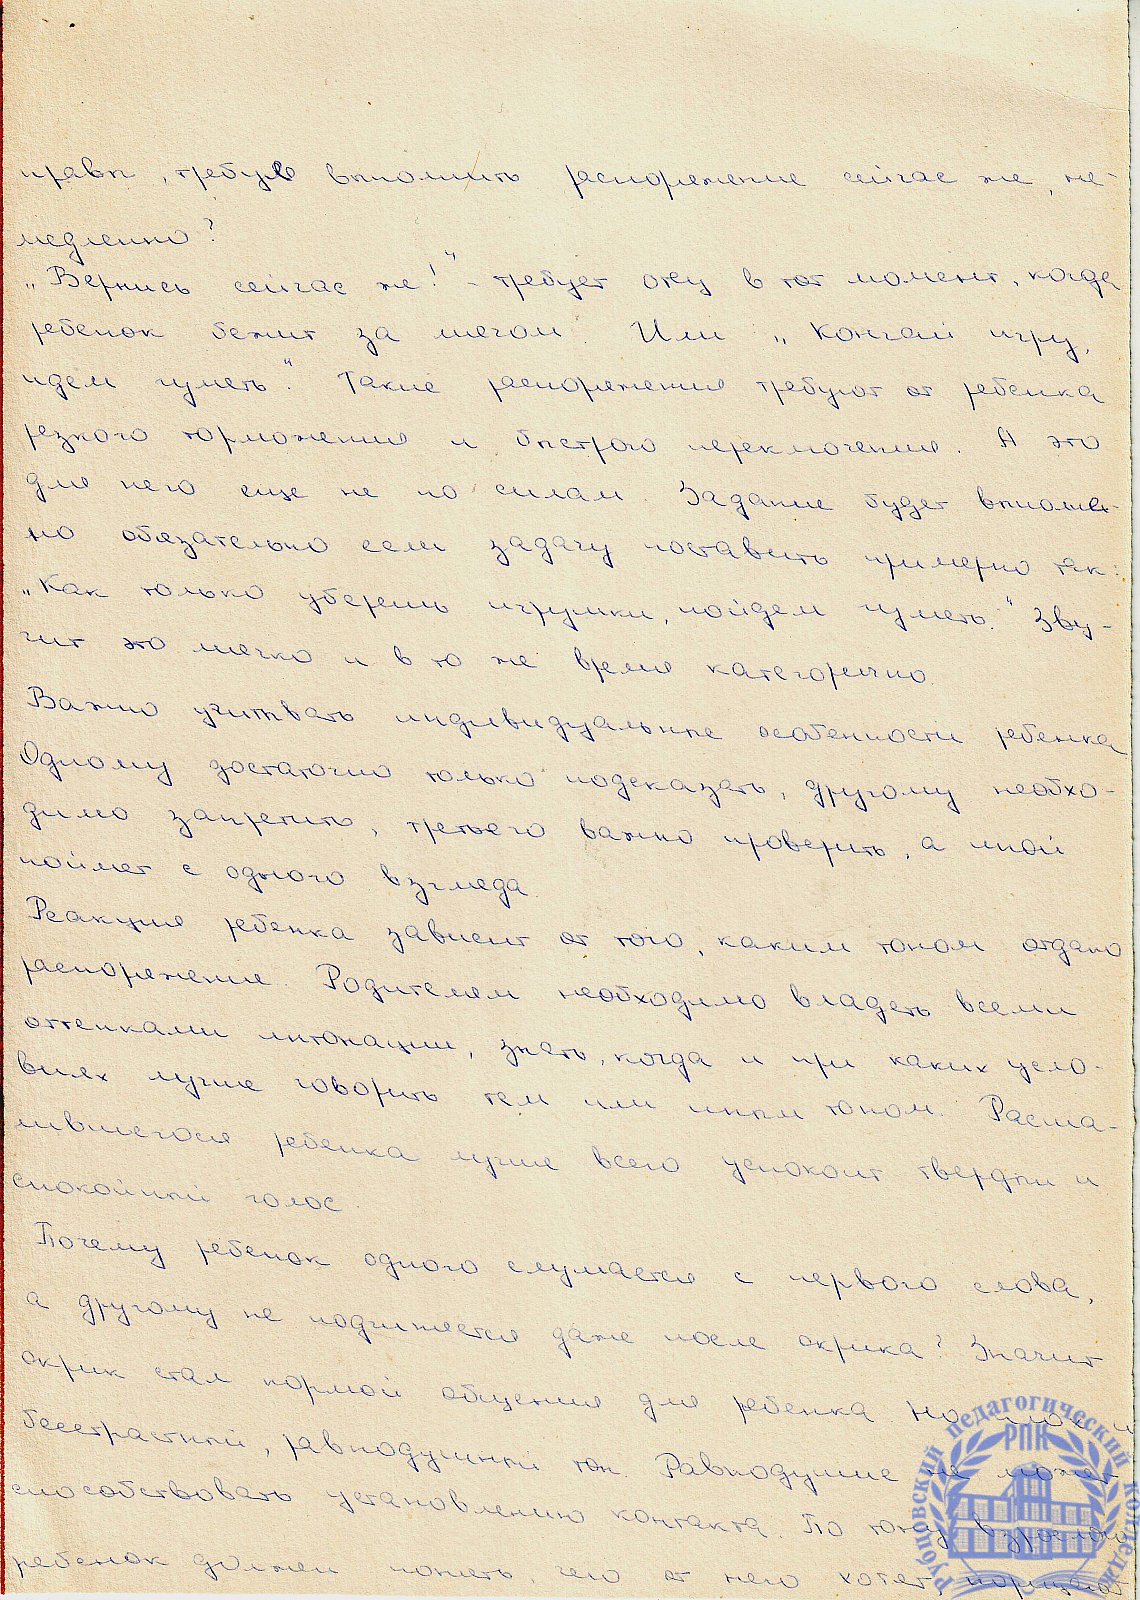 правы, требуя выполнить распоряжение сейчас же, не-
медленно?
„Вернись сейчас же!" - требует отец в тот момент, когда
ребенок бежит за мячом. Или „Кончай игру,
идем гулять". Такие распоряжения требуют от ребенка
резкого торможения и быстрого переключения. А это
для него еще не по силам. Задание будет выполне-
но обязательно если задачу поставить примерно так:
„Как только уберешь игрушки, пойдем гулять." Зву-
чит это мягко и в то же время категорично.
Важно учитывать индивидуальные особенности ребенка
Одному достаточно только подсказать, другому необхо-
димо запретить, третьего важно проверить, а иной
поймет с одного взгляда.
Реакция ребенка зависит от того, каким тоном отдано
распоряжение. Родителям необходимо владеть всеми
оттенками интонации, знать, когда и при каких усло-
виях лучше говорить тем или иным тоном. Расша-
лившегося ребенка лучше всего успокоит твердый и
спокойный голос.
Почему ребенок одного слушается с первого слова,
а другому не подчиняется даже после окрика? Значит
окрик стал нормой общения для ребенка. Но плох и
бесстрастный, равнодушный тон. Равнодушие не может
способствовать установлению контакта. По тону взрослого
ребенок должен понять, чего от него хотят, порицают
Рубцовский педагогический колледж
РПК